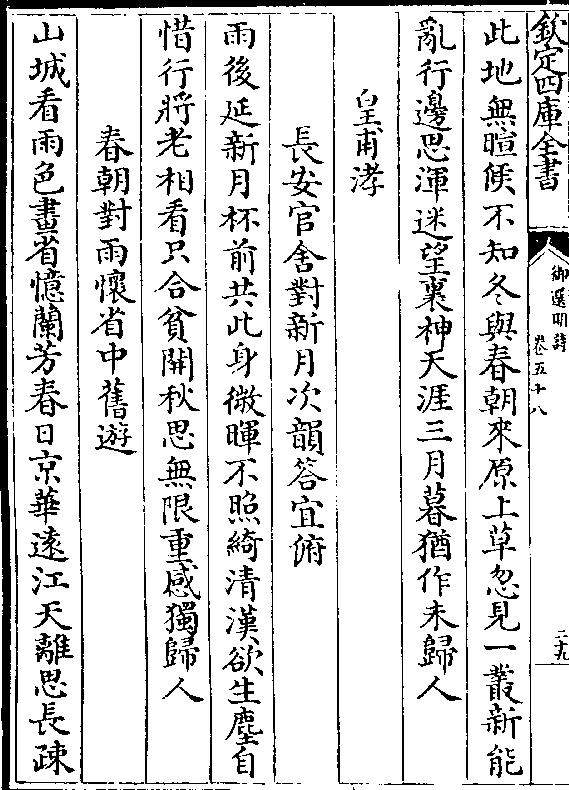 欽定四庫全書
御選明詩
卷五十八
二十九
此地無暄候不知冬與春朝來原上草忽見一叢新能
亂行邊思渾迷望裏神天涯三月暮猶作未歸人
皇甫涍
長安官舍對新月次韻答宜俯
雨後延新月杯前共此身微暉不照綺清漢欲生塵自
惜行將老相看只合貧關秋思無限重感獨歸人
春朝對雨懷省中舊遊
山城看雨色畫省憶蘭芳春日京華逺江天離思長疎